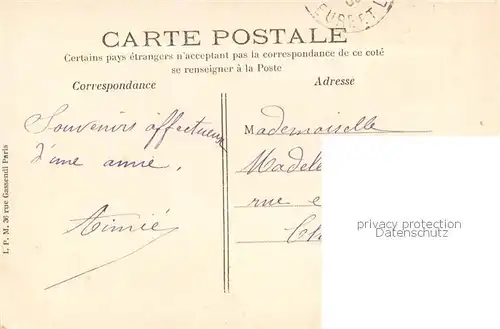 EURE ET L
CARTE POSTALE
Certains pays étrangers n'acceptant pas la correspondance de ce coté
se renseigner à la Poste
Correspondance
Adresse
Souvenirs affectueux
d'une amie.
Aimié
Mademoiselle
Madele
rue
privacy protection
Datenschutz
L. P. M. 36 rue Gassendi Paris